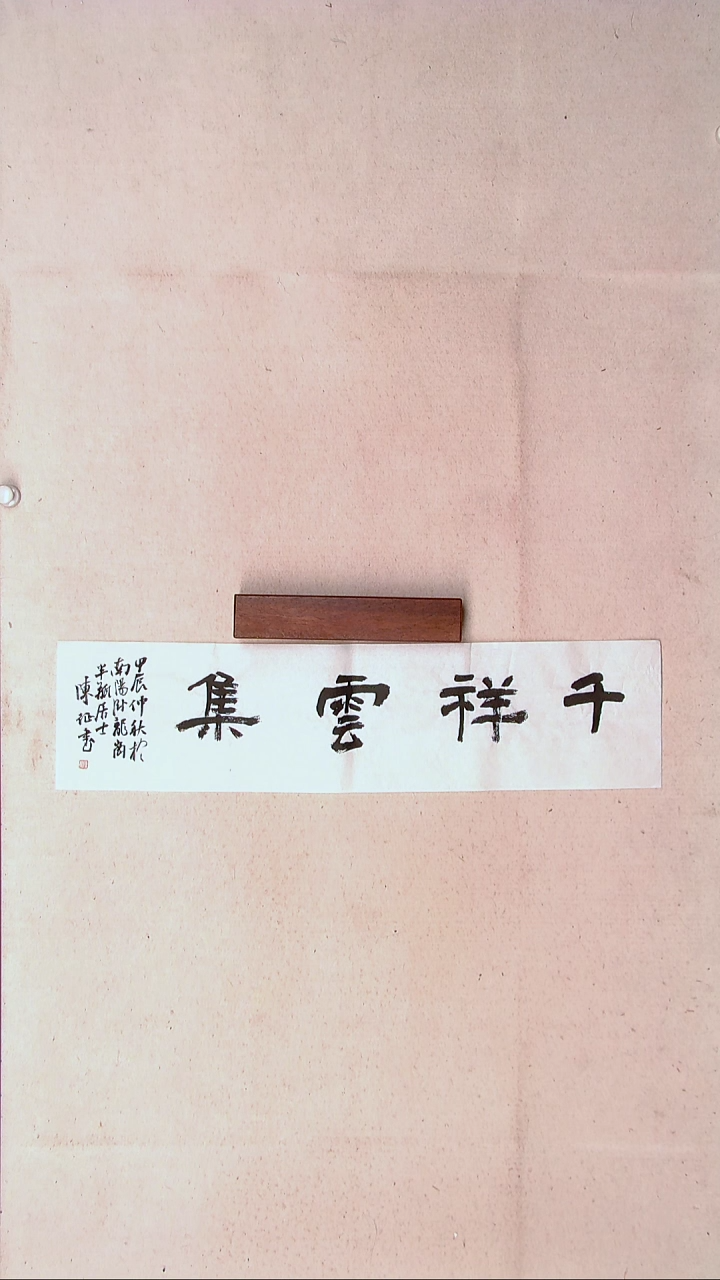 千祥雲集
甲辰仲秋於
南陽卧龍崗
半瓻居士
陳征書